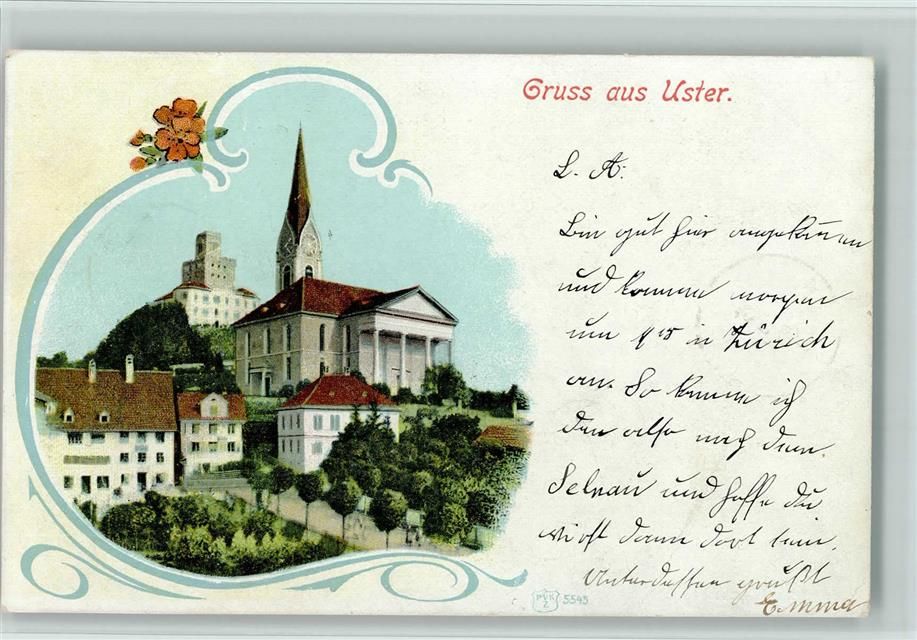 Gruss aus Uster.
L. A.
Bin gut hier angekommen
und komme morgen
um 9 15 in Zürich
an. So komme ich
dann also nach dem
Selnau und hoffe du
dann dort sein.
Unterdessen grüßt
Emma
PVK
Z
5545